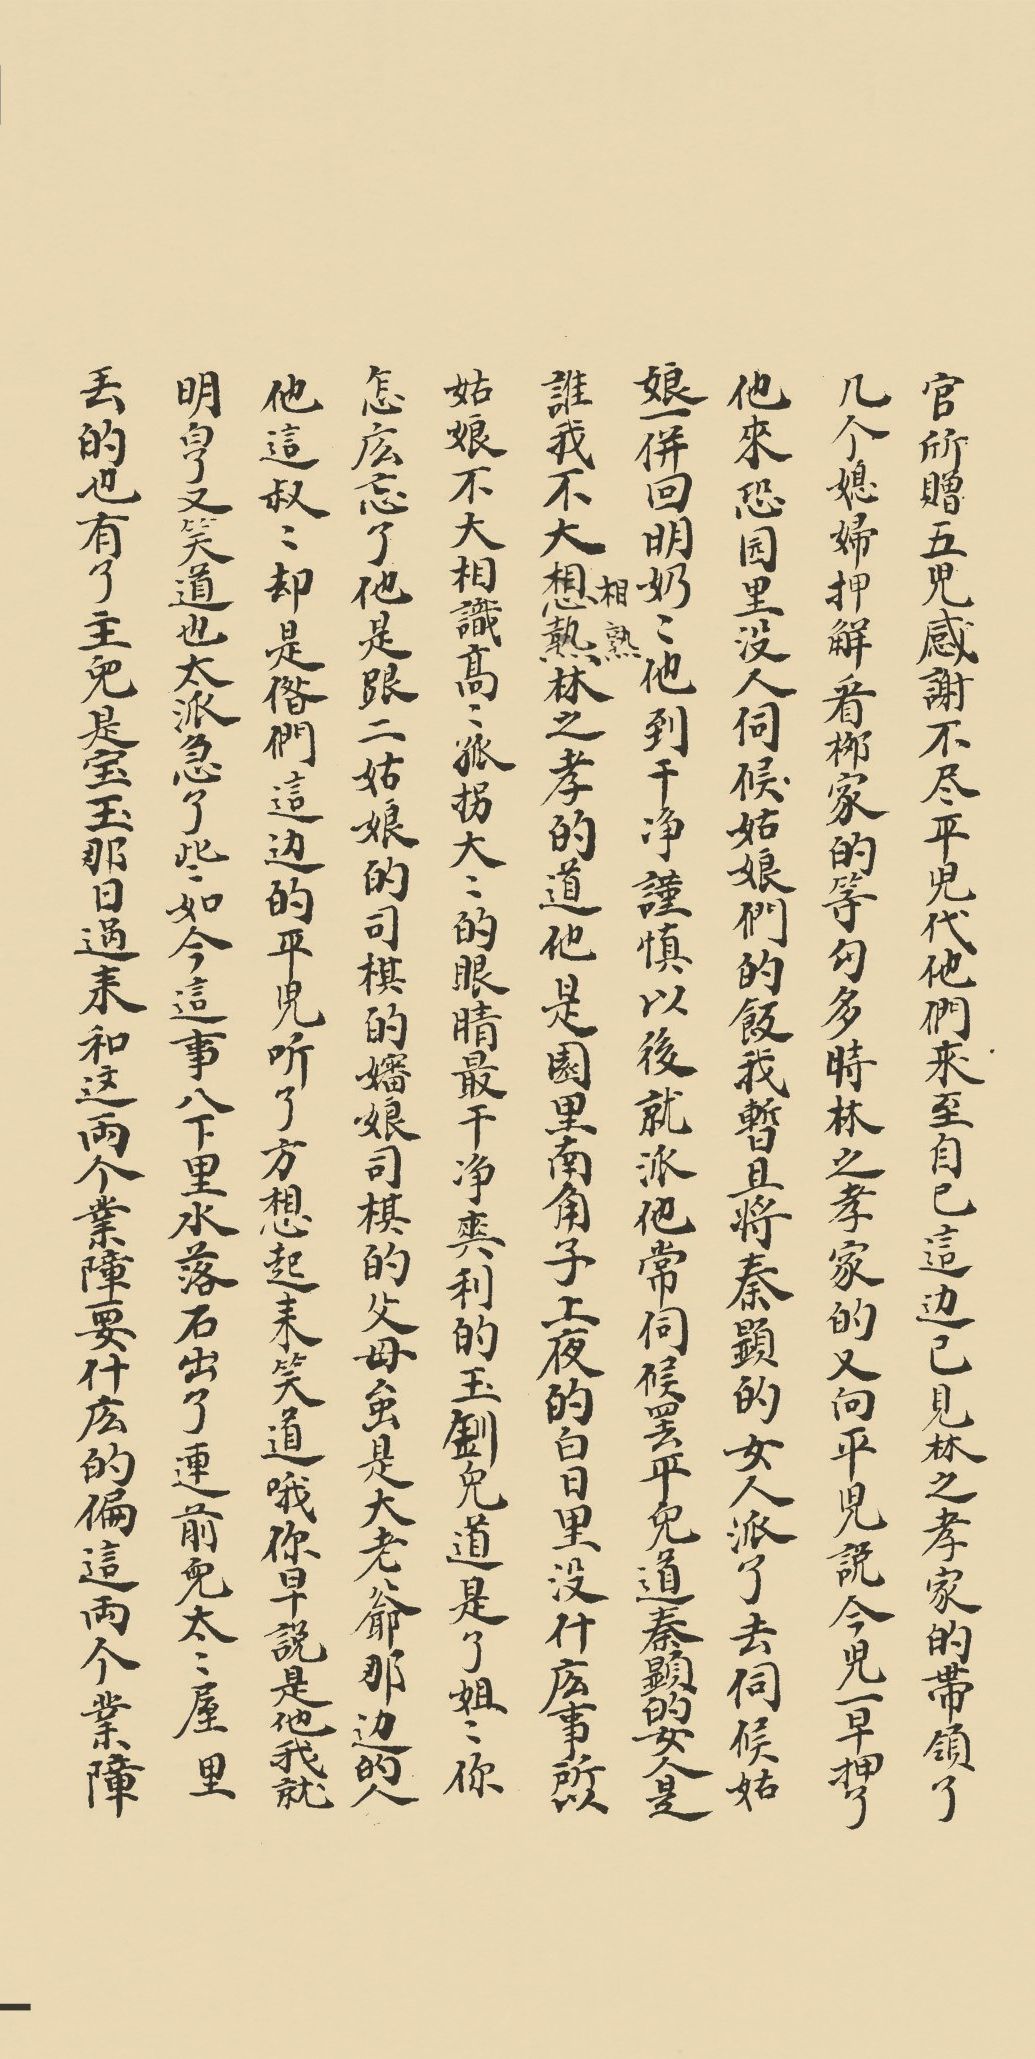 官所贈五兒感謝不尽平児代他們来至自已這边已見林之孝家的帶領了
几个媳婦押解着柳家的等勾多時林之孝家的又向平児説今児一早押了
他來恐园里没人伺候姑娘們的飯我暫且將秦顕的女人派了去伺候姑
娘一併回明奶〻他到干净謹慎以後就派他常伺候罢平児道秦顕的女人是
誰我不大想熱林之孝的道他是園里南角子上夜的白日里没什庅事所以
相熟
姑娘不大相識高〻孤拐大〻的眼睛最干净爽利的玉釧児道是了姐〻你
怎庅忘了他是跟二姑娘的司棋的嬸娘司棋的父母虽是大老爺那边的人
他這叔〻却是偺們這边的平児听了方想起来笑道哦你早説是他我就
明白了又笑道也太派急了些如今這事八下里水落石出了連前児太〻屋里
丢的也有了主児是宝玉那日过来和这両个業障要什庅的偏這両个業障